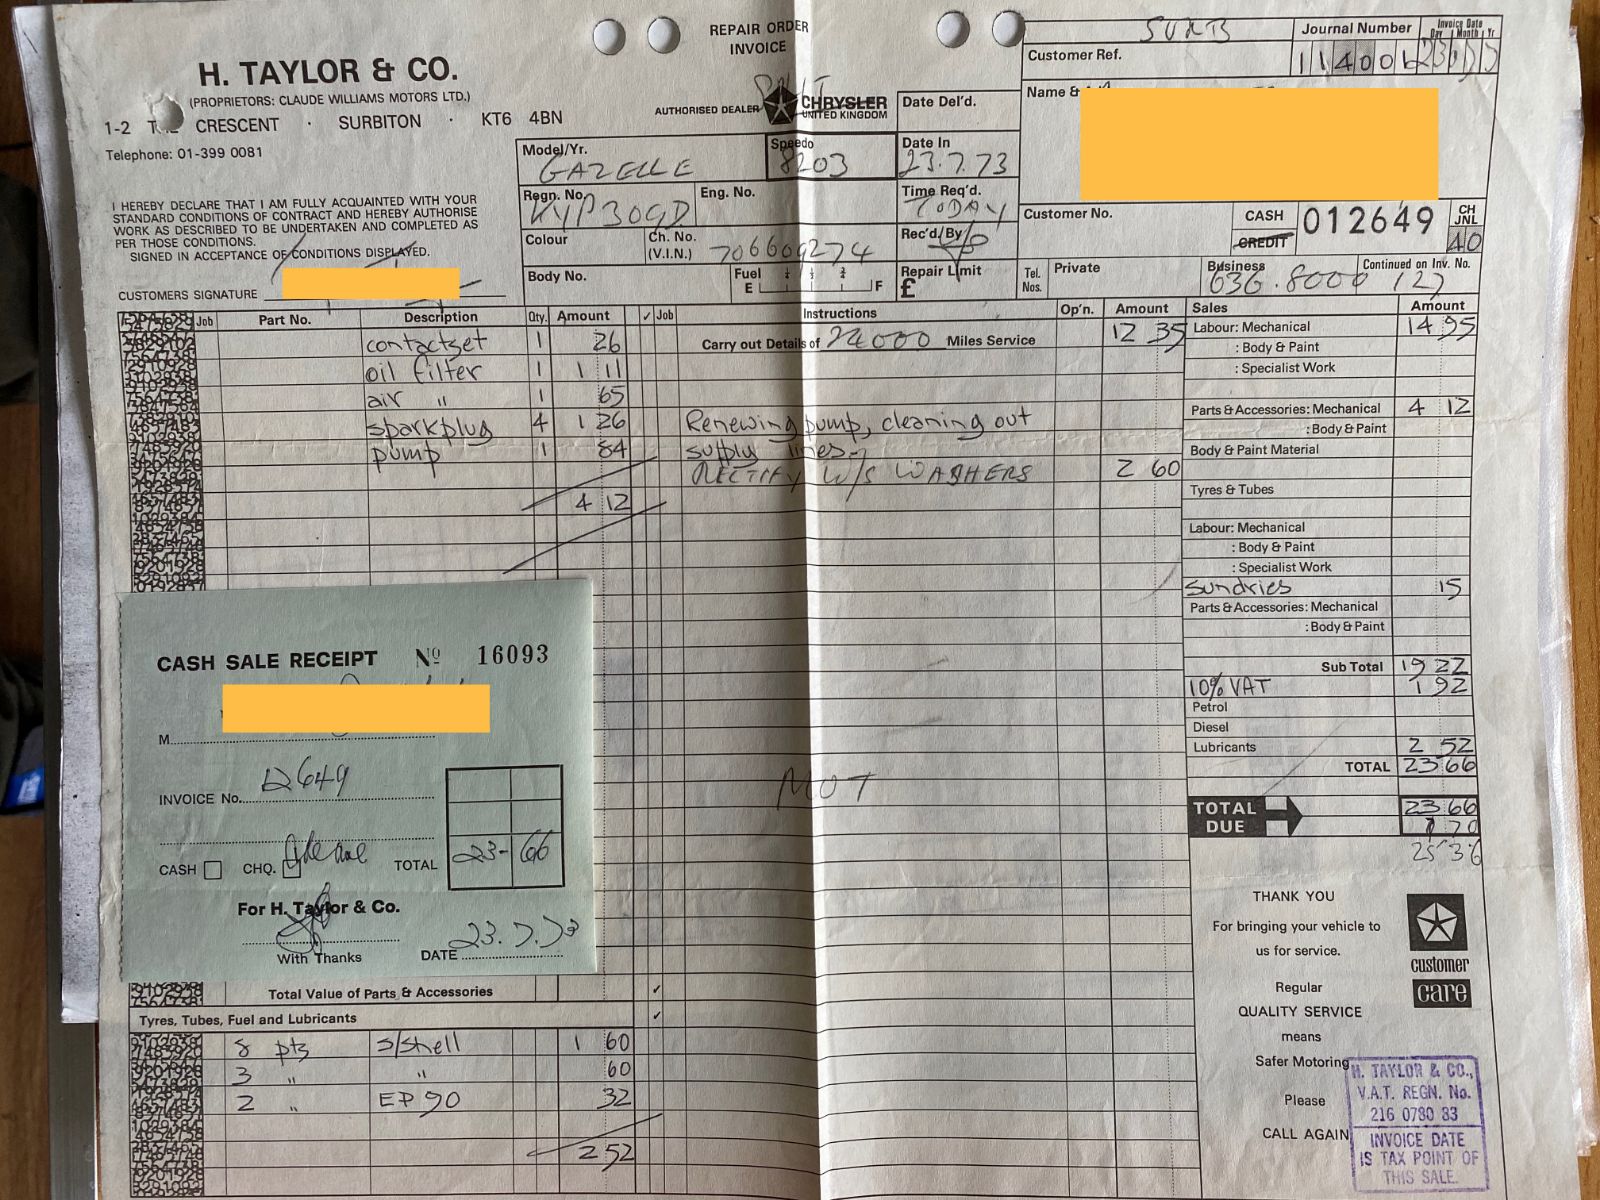 REPAIR ORDER
INVOICE
H. TAYLOR & CO.
(PROPRIETORS: CLAUDE WILLIAMS MOTORS LTD.)
1-2 CRESCENT · SURBITON · KT6 4BN
Telephone: 01-399 0081
AUTHORISED DEALER CHRYSLER
UNITED KINGDOM
SURB
Customer Ref.
Journal Number
Invoice Date
Day Month Yr
Name &
I HEREBY DECLARE THAT I AM FULLY ACQUAINTED WITH YOUR
STANDARD CONDITIONS OF CONTRACT AND HEREBY AUTHORISE
WORK AS DESCRIBED TO BE UNDERTAKEN AND COMPLETED AS
PER THOSE CONDITIONS.
SIGNED IN ACCEPTANCE OF CONDITIONS DISPLAYED.
CUSTOMERS SIGNATURE
Model/Yr. GAZELLE
Speedo 8203
Date Del'd.
Date In 23.7.73
Regn. No.
Eng. No.
Time Req'd. TODAY
Colour
Ch. No. (V.I.N.) 706609274
Rec'd/By
Body No.
Fuel E ¼ ½ ¾ F
Repair Limit £
Customer No.
CASH
CREDIT
012649
CH JNL 40
Tel. Nos. Private
Business 636.8000
Continued on Inv. No.
Job Part No. Description Qty. Amount
contactset 1 26
oil filter 1 1 11
air " 1 65
sparkplug 4 1 26
pump 1 84
4 12
✓ Job Instructions Op'n. Amount
Carry out Details of Miles Service 12 35
Renewing pump, cleaning out
supply lines.
RECTIFY W/S WASHERS 2 60
MOT
Sales Amount
Labour: Mechanical 14 95
: Body & Paint
: Specialist Work
Parts & Accessories: Mechanical 4 12
: Body & Paint
Body & Paint Material
Tyres & Tubes
Labour: Mechanical
: Body & Paint
: Specialist Work
Sundries 15
Parts & Accessories: Mechanical
: Body & Paint
Sub Total 19 22
10% VAT 1 92
Petrol
Diesel
Lubricants 2 52
TOTAL 23 66
TOTAL DUE 23 66
1 70
25 36
CASH SALE RECEIPT No 16093
M
INVOICE No. 12649
CASH CHQ. TOTAL 23-66
For H. Taylor & Co.
With Thanks
DATE 23.7.73
Total Value of Parts & Accessories ✓
Tyres, Tubes, Fuel and Lubricants ✓
8 pts S/Shell 1 60
3 " " 60
2 " EP 90 32
2 52
THANK YOU
For bringing your vehicle to
us for service.
Regular
QUALITY SERVICE
means
Safer Motoring
Please
CALL AGAIN
customer
care
H. TAYLOR & CO.,
V.A.T. REGN. No.
216 0780 83
INVOICE DATE
IS TAX POINT OF
THIS SALE.